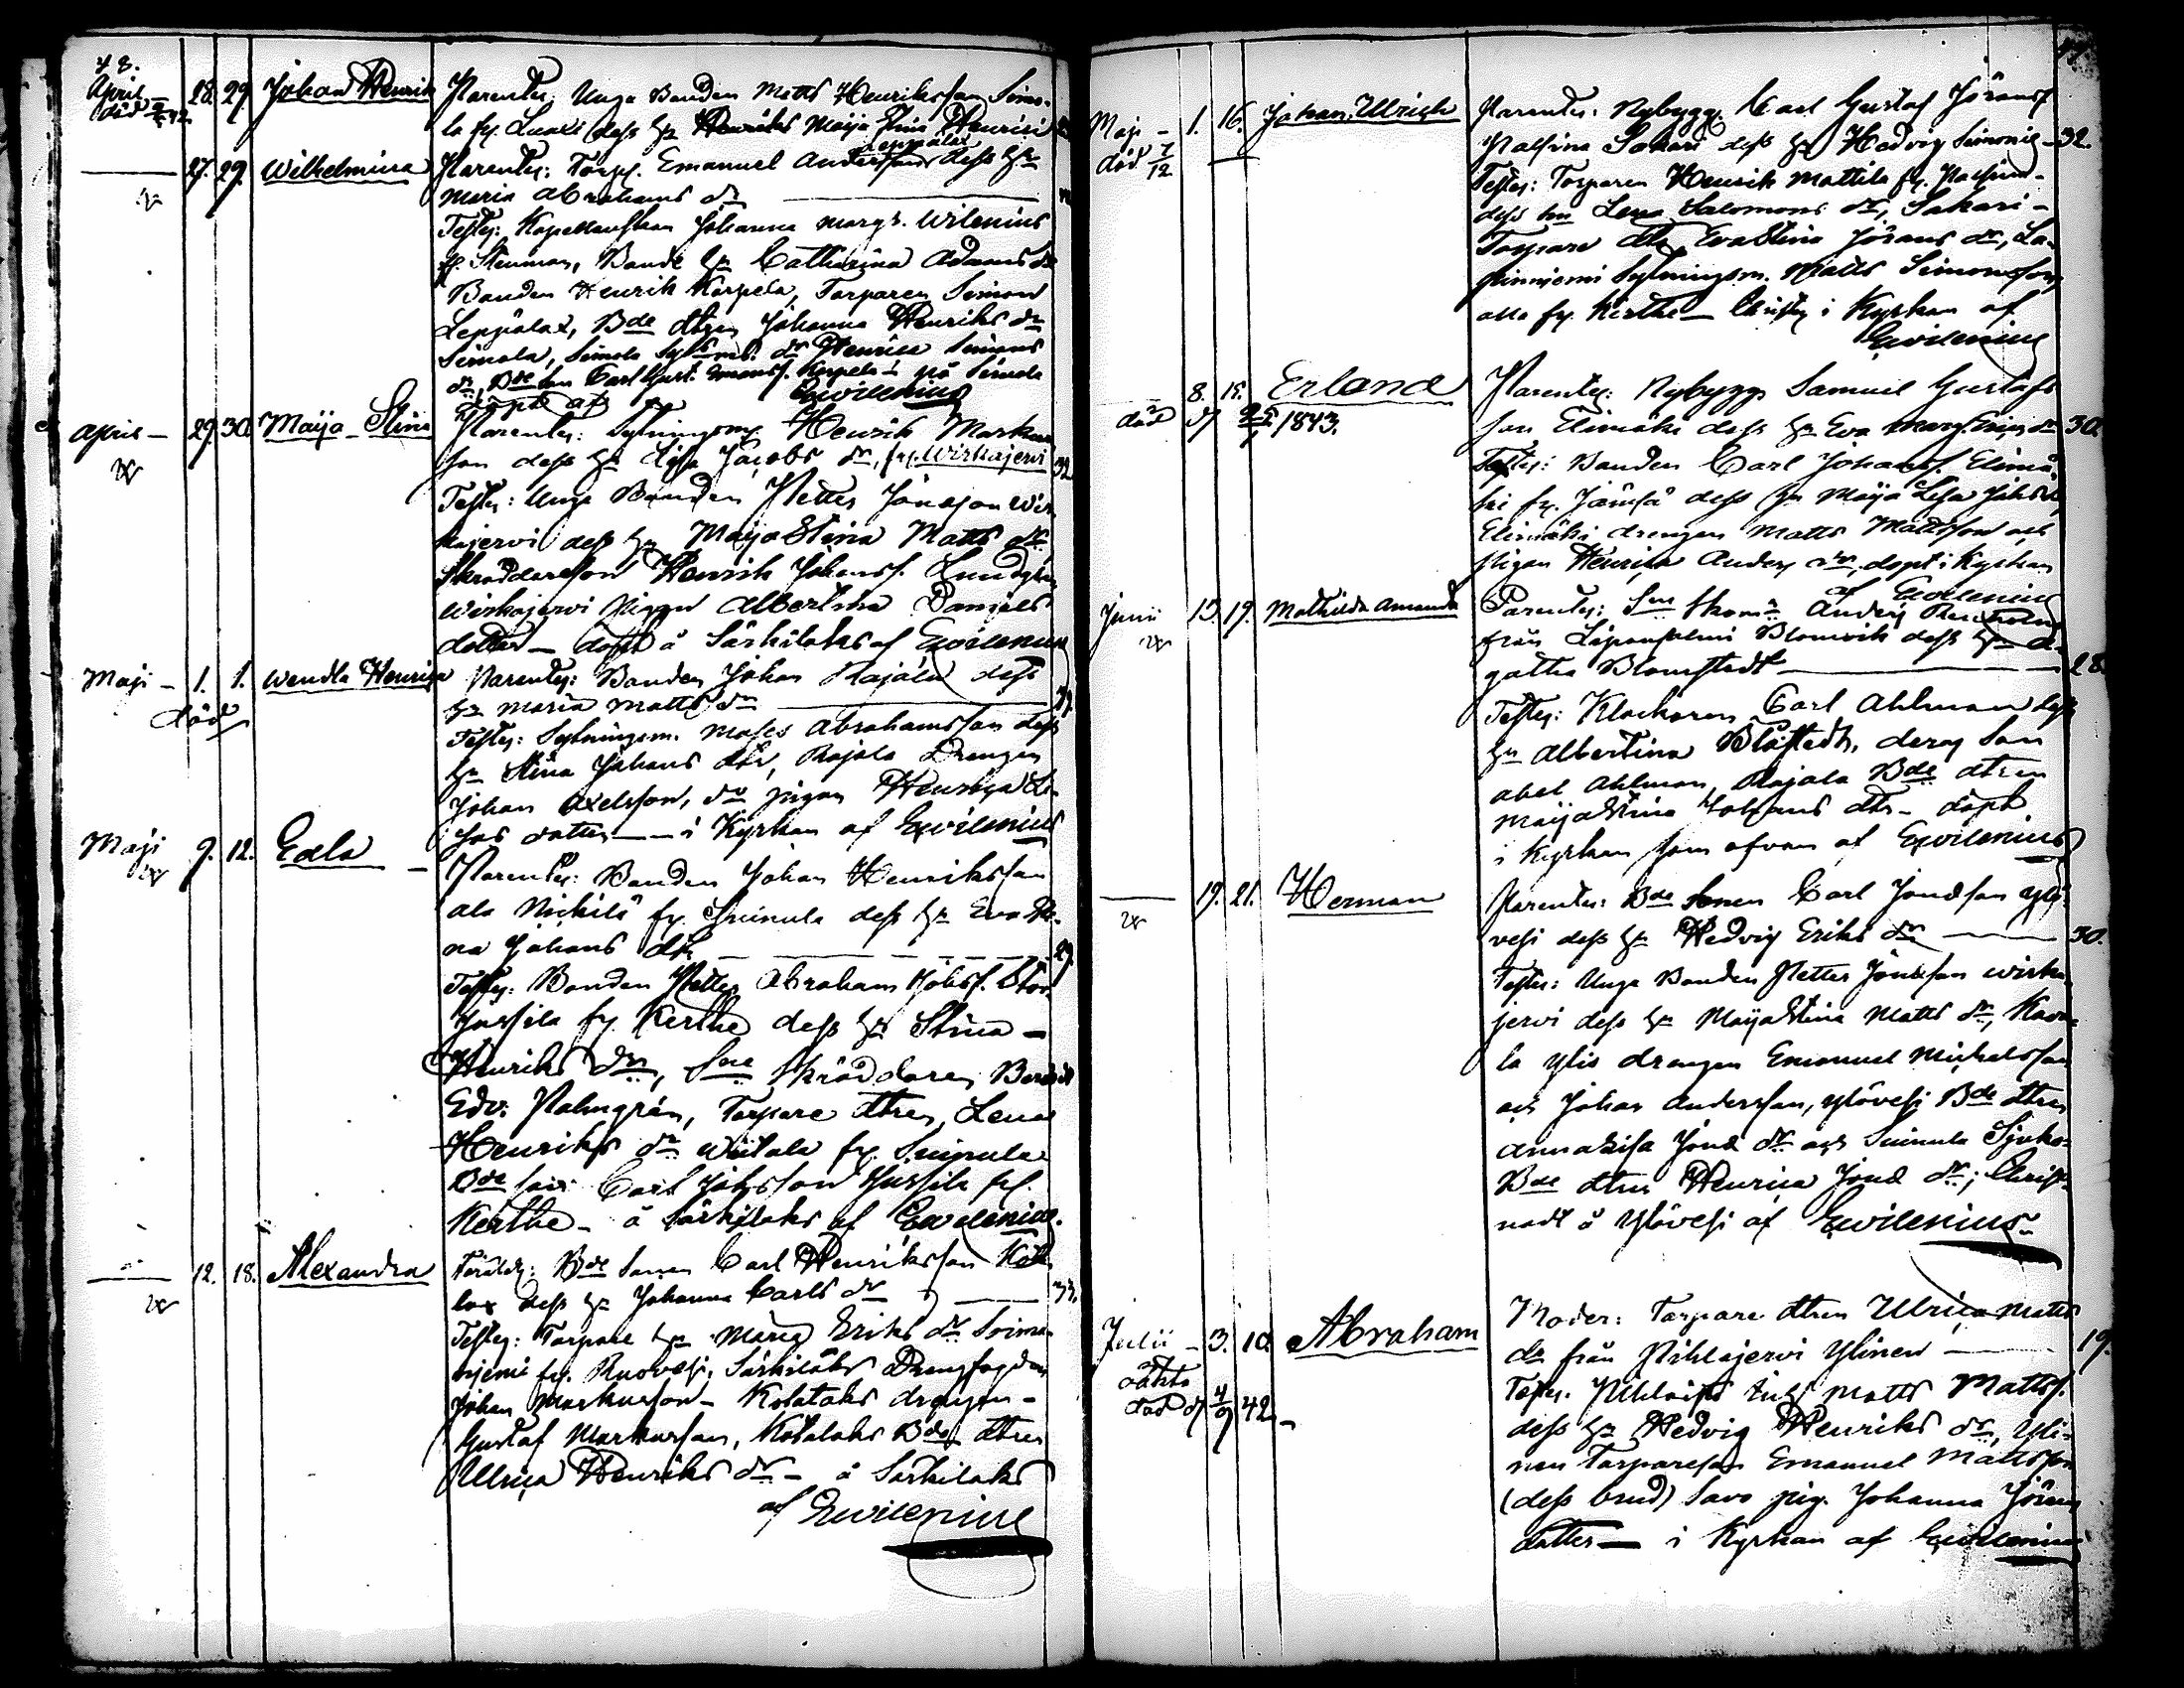 48.
April – 28. 29. Johan Henrik Parentes: Unga Bonden Matts Henriksson Simo-
död la fr. Luaxi dess h:u Maija Stina Henriksd
27. 29. Wilhelmina Parentes: Torp. Emanuel Andersson Leppälax dess h:u
Maria Abrahams dr
Testes: Kapellanskan Johanna Margr. Wilenius
f. Stenman, Bonde h:u Catharina Adams dr
Bonden Henrik Korpela, Torparen Simon
Leppälax, Bde dtren Johanna Henriks dr
Simola, Simola Sytms dr Henrica Simons
dr, Bde son Carl Gust. Korpela – på Simola
döpt af Ewilenius
April – 29. 30. Maija Stina Parentes: Sytningsm. Henrik Markus
son dess h:u Lisa Jacobs dr, fr. Wirkajervi 32
Testes: Unga Bonden Petter Jonsson Wir-
kajervi dess h:u Maija Stina Matts dr
Skräddareson Henrik Johanss. Lundgren
Wirkajervi Pigan Albertina Daniels
dotter – döpt å Särkilaks af Ewilenius
Maji – 1. 1. Wendla Henrica Parentes: Bonden Johan Rajala dess
död h:u Maria Matts dr
Testes: Sytningsm. Moses Abrahamsson dess
h:u Stina Johans dtr, Rajala Drengen
Johan Axelsson, do pigan Henrica
dotter – i Kyrkan af Ewilenius
Maji 9. 12. Edla Parentes: Bonden Johan Henriksson
ala Nickilä fr. Suinula dess h:u Eva Sti-
na Johans dtr 29.
Testes: Bonden Petter Abraham Johss. Stor
Jussila fr. Kerthe dess h:u Stina –
Henriks dr, Sne Skräddaren Berndt
Edv. Palmgrén, Torpare dtren Lena
Henriks dr Wiitala fr. Suinula
Bde son Carl Johsson Jussila fr.
Kerthe – å Särkilaks af Ewilenius.
12. 18. Alexandra Föräldr: Bde Sonen Carl Henriksson Kota
lax dess h:u Johanna Carls dr 33.
Testes: Torpare h:u Maria Eriks dr
niemi fr. Ruovesi, Särkilaks Drengfogden
Johan Markusson – Kotalaks drengen –
Gustaf Markusson, Kotalaks Bde dtren
Ulrica Henriks dr – å Särkilaks
af Ewilenius
Maji – 1. 16. Johan Ulrich Parentes: Nybygg. Carl Gustaf Jöranss
död 7/12 Palsina Sakari dess h:u Hedvig Simonis – 32.
Testes: Torparen Henrik Mattila fr. Palsina
dess hu Lena Salomons dr, Sakari –
Torpare dtr Eva Stina Jörans dr, La-
Sytningsm. Matts Simonsson,
alla fr. Kerthe – Christn. i Kyrkan af
Ewilenius
8. 15. Erland Parentes: Nybygg. Samuel Gustafs
död d 1843. son Elimäki dess h:u Eva Marg. dr 30.
Testes: Bonden Carl Johanss. Elimä-
ki fr. Jämsä dess h:u Maija Lisa Johs dr,
Elimäki drengen Matts Mattsson och
Pigan Henrica Anders dr, döpt i Kyrkan
af Ewilenius
Junii 15. 19. Mathilda Amanda Parentes: Sne Skom. Anders
från Blomvik dess h:u A-
gatha Blomstedt – 28.
Testes: Klockaren Carl Ahlman dess
h:u Albertina Blåfjedt, deras Son
Abel Ahlman, Rajala Bde dtren
Maija Stina Johans dtr – döpt
i Kyrkan som ofvan af Ewilenius
19. 21. Herman Parentes: Bde Sonen Carl Jonasson Ylö-
vesi dess h:u Hedvig Eriks dr – 30.
Testes: Unga Bonden Petter Jönsson Wirka-
jervi dess h:u Maija Stina Matts dr, Kavo-
la Ylis drengen Emanuel Michelsson
och Johan Andersson, Ylövesi Bde dtren
Anna Lisa Jonæ dr och Suinula
Bde dtren Henrica Jonæ dr; Christ-
nadt å Ylövesi af Ewilenius
Julii – 3. 10. Abraham Moder: Torpare dtren Ulrica Matts
oäkta dr från Pihlajervi Ylinen – 19.
död d 4/9 42 – Testes: Matts Mattss.
dess h:u Hedvig Henriks dr, Yli-
nen Torpareson Emanuel Mattsson
(dess brud) Savo pig. Johanna Jörans
dotter – i Kyrkan af Ewilenius